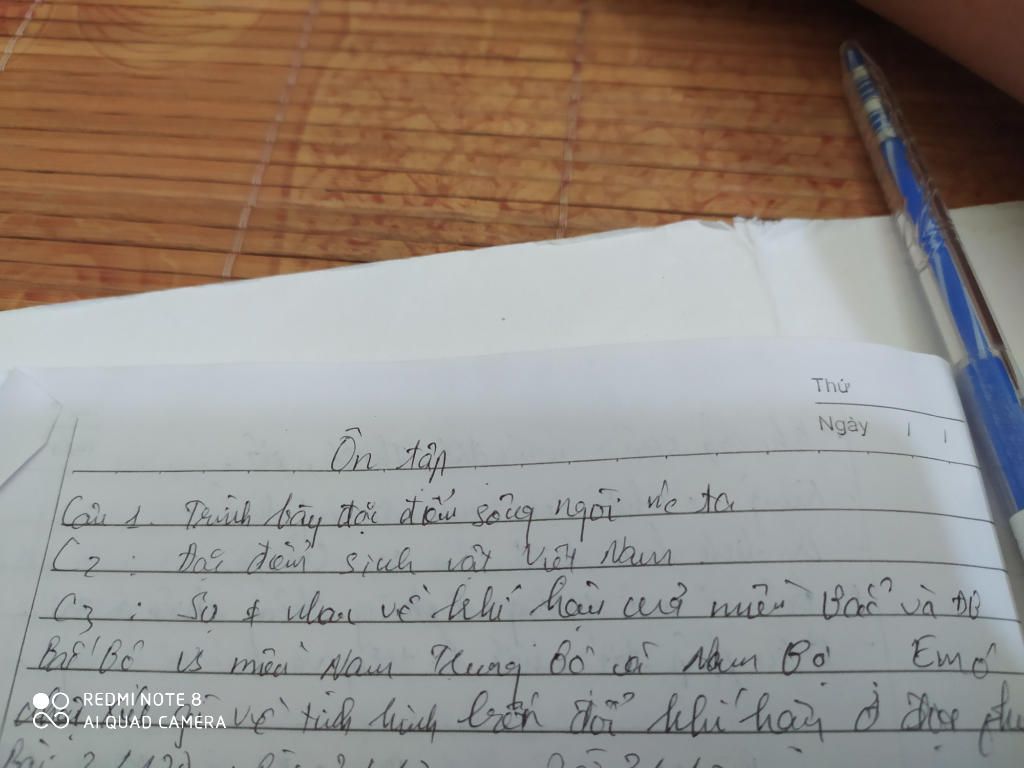 Thứ
Ngày / /
Ôn tập
Câu 1. Trình bày đặc điểm sông ngòi nc ta
C2 : Đặc điểm sinh vật Việt Nam
C3 : Sự ≠ nhau về khí hậu của miền Bắc và ĐB
Bắc Bộ vs miền Nam Trung Bộ và Nam Bộ Em
về tình hình biến đổi khí hậu ở
REDMI NOTE 8
AI QUAD CAMERA